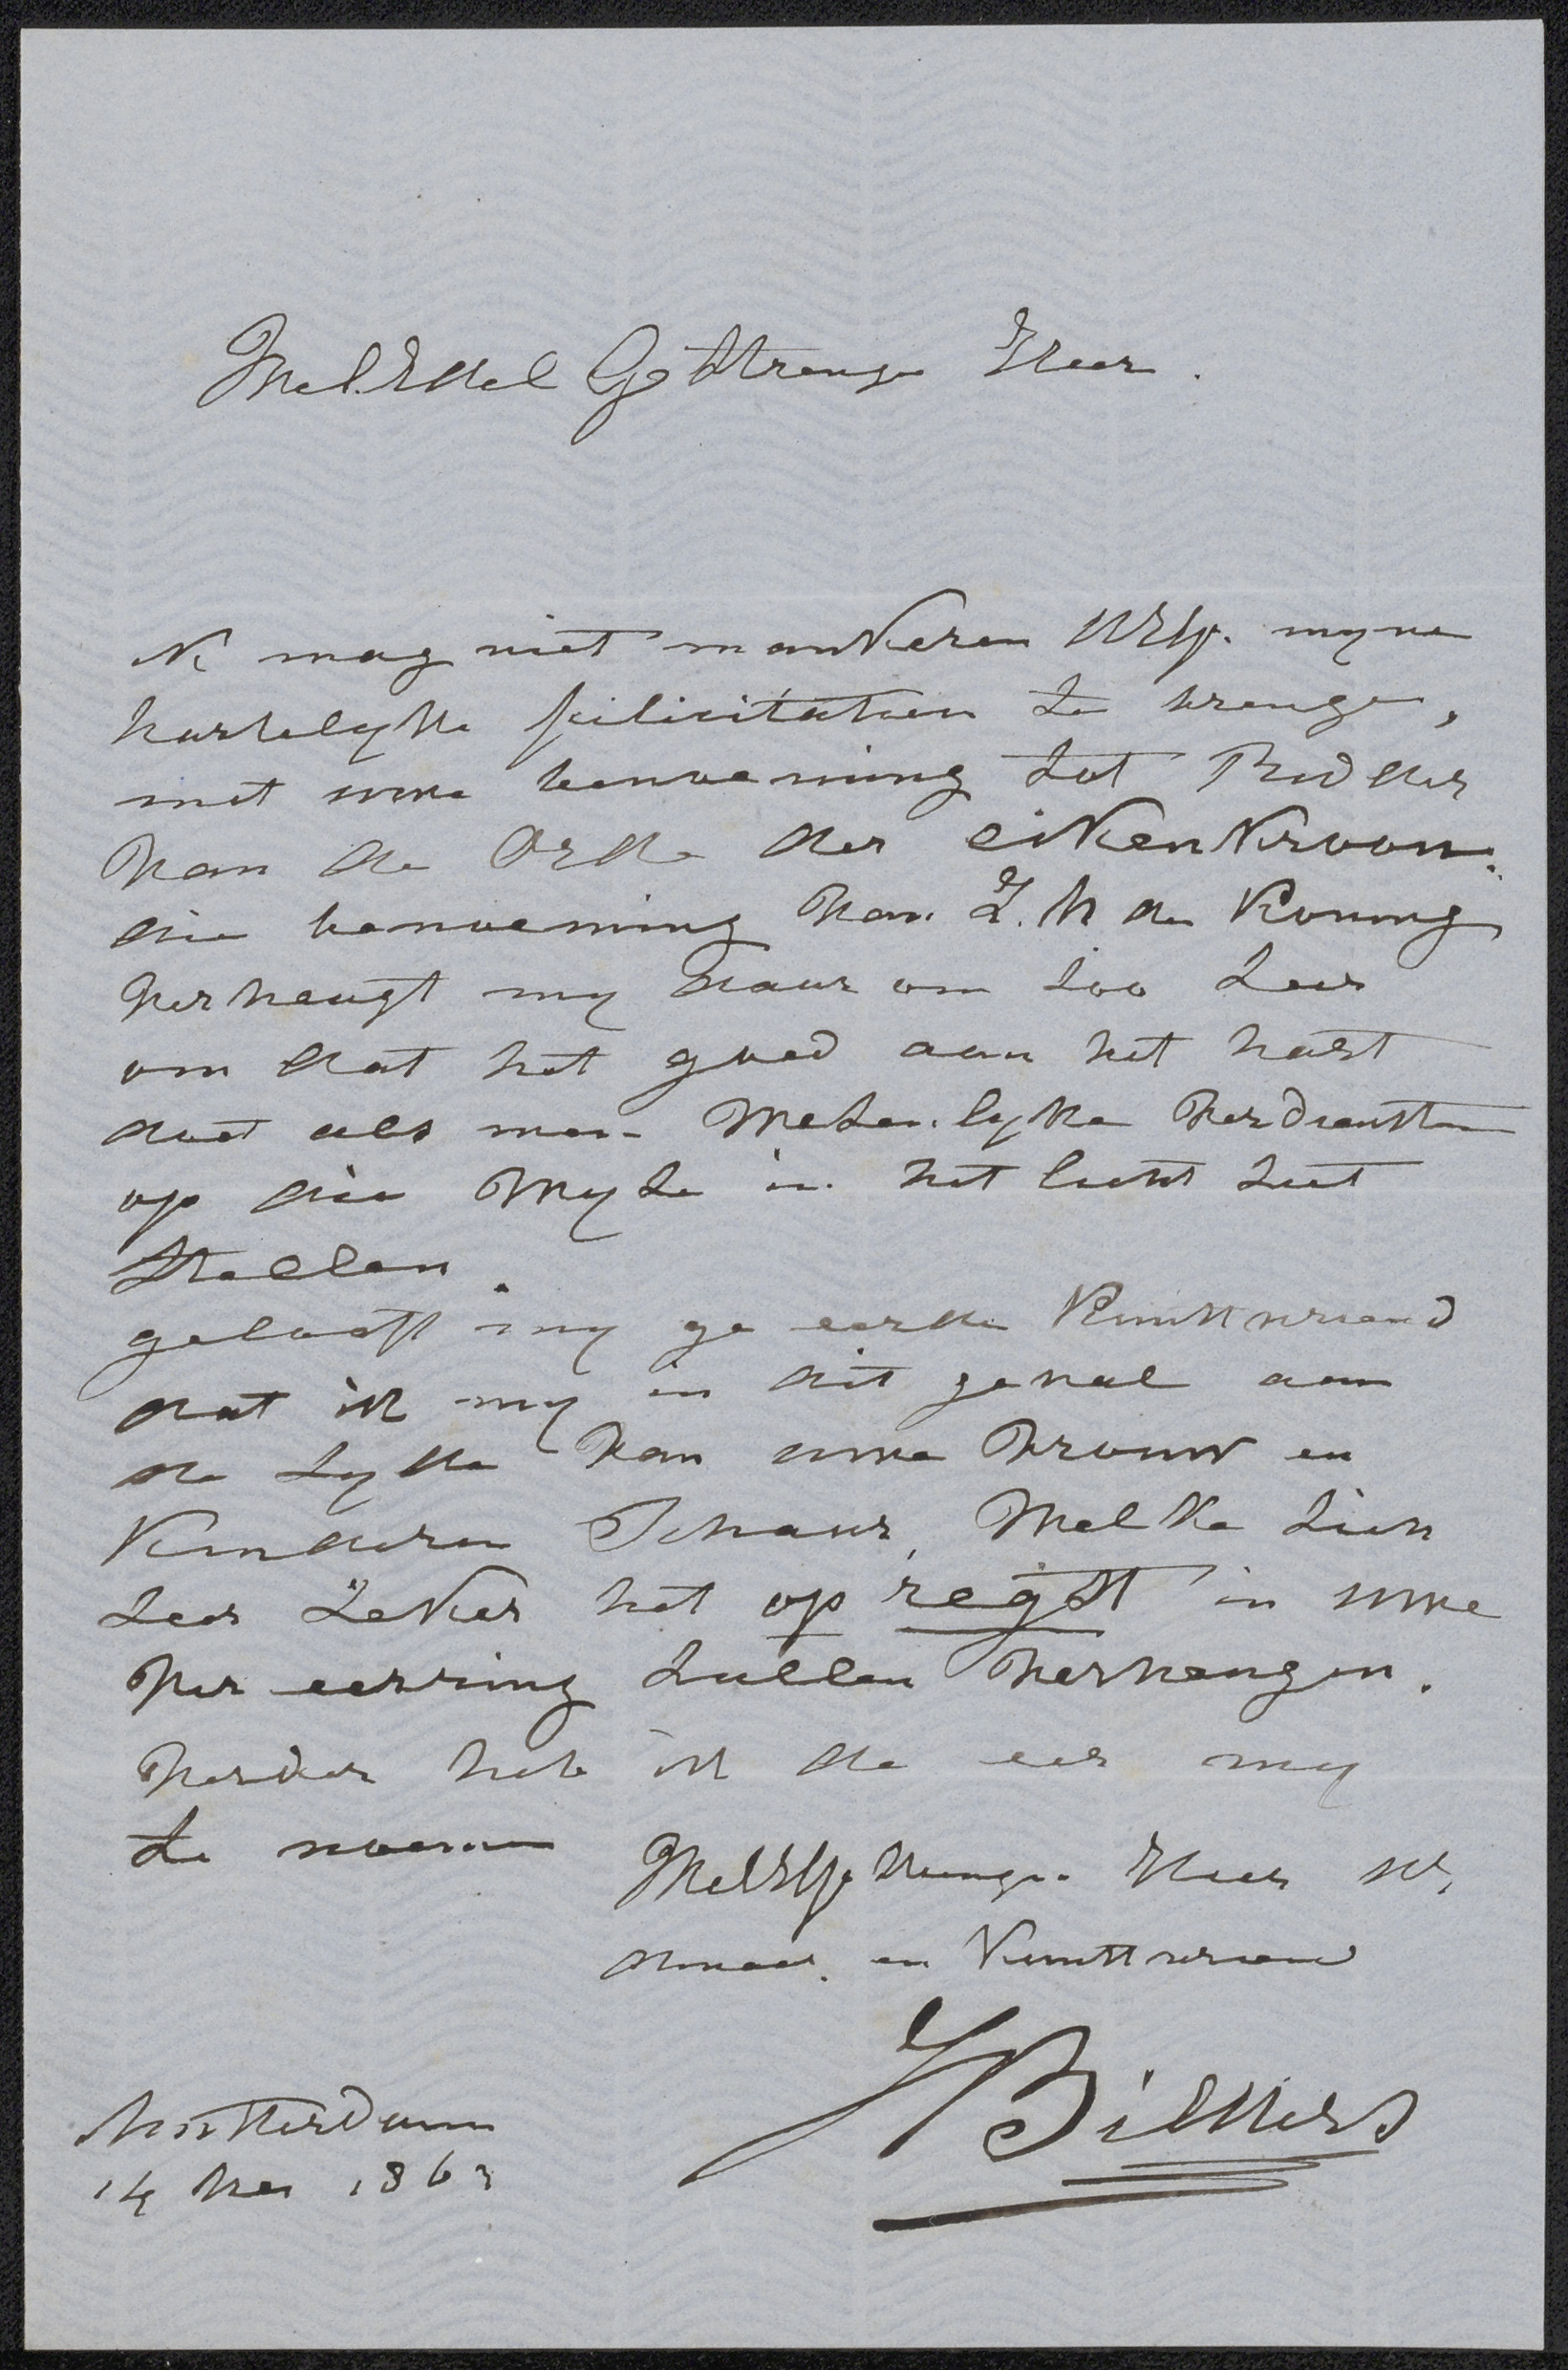 WelEdel Gestrenge Heer.
Ik mag niet mankeren UEG. myne
hartelyke felicitatien te brenge,
met uwe benoeming tot Ridder
van de Orde der eikenkroon.
die benoeming van Z. M de Koning
verheugt my daar om zoo zeer
om dat het goed aan het hart
doet als men Wezenlyke verdiensten
op die Wyze in het licht ziet
stellen.
gelooft my ge eerde Kunstvriend
dat ik my in dit geval aan
de zyde van uwe Vrouw en
Kinderen Schaar, Welke zich
zeer zeker het op regst in uwe
ver eerring zullen verheugen.
verder heb ik de eer my
te noemen
WelEGestrenge Heer UE,
dienaar en Kunstvriend
J Bilders
Amsterdam
14 Mei 1863